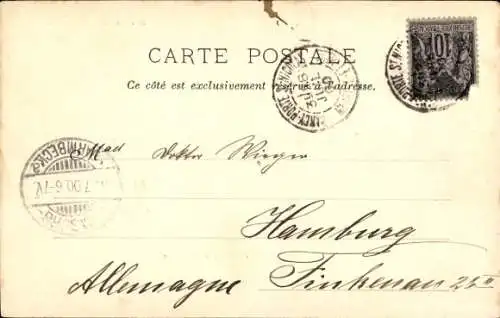 CARTE POSTALE
Ce côté est exclusivement réservé à l'adresse.
10
BARMBECK
7.00.6-7V.
Mad Doktor Wieger
Hamburg
Allemagne Finkenau 25 II